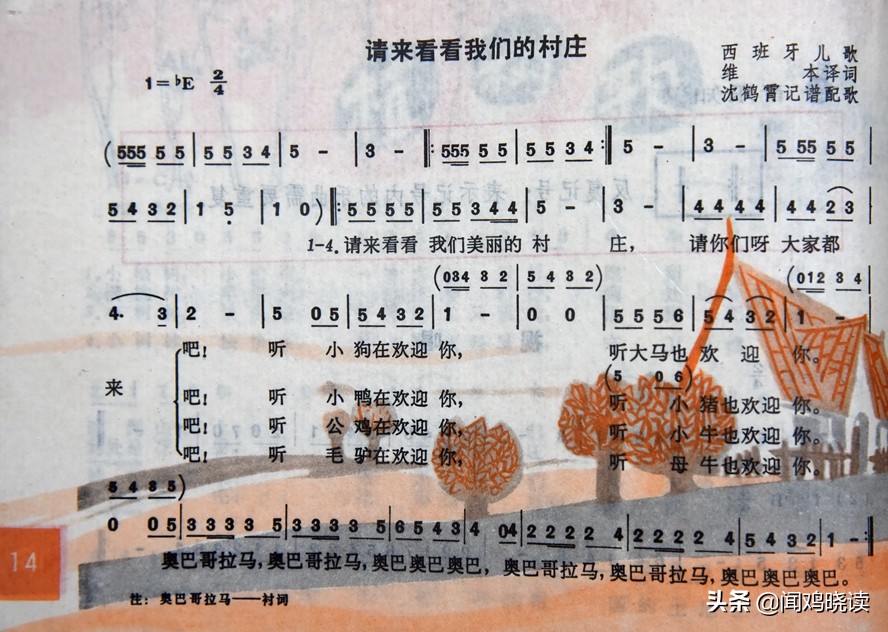 请来看看我们的村庄
1=♭E 2/4
西班牙儿歌
维本译词
沈鹤霄记谱配歌
(555 5 5 | 5 5 3 4 | 5 - | 3 - ‖: 555 5 5 | 5 5 3 4 :‖ 5 - | 3 - | 5 555 5 5 |
5 4 3 2 | 1 5 | 1 0 ) ‖: 5 5 5 5 | 5 5 3 4 4 | 5 - | 3 - | 4 4 4 4 | 4 4 2 3 |
1-4.请来看看 我们美丽的 村 庄, 请你们呀 大家都
(034 3 2 | 5 4 3 2) (012 3 4 |
4. 3 | 2 - | 5 0 5 | 5 4 3 2 | 1 - | 0 0 | 5 5 5 6 | 5 4 3 2 | 1 - |
吧! 听 小 狗在欢迎 你, 听大马也 欢 迎 你。
(5 0 6)
来
吧! 听 小 鸭在欢迎 你, 听 小 猪也欢迎 你。
吧! 听 公 鸡在欢迎 你, 听 小 牛也欢迎 你。
吧! 听 毛 驴在欢迎 你, 听 母 牛也欢迎 你。
5 4 3 5)
0 0 5 | 3 3 3 3 | 3 3 3 3 5 | 6 5 4 3 | 4 04 | 2 2 2 2 4 | 2 2 2 2 4 | 5 4 3 2 | 1 - :‖
奥巴哥拉马,奥巴哥拉马,奥巴奥巴奥巴, 奥巴哥拉马,奥巴哥拉马,奥巴奥巴奥巴。
注: 奥巴哥拉马——衬词
14
头条 @闻鸡晓读